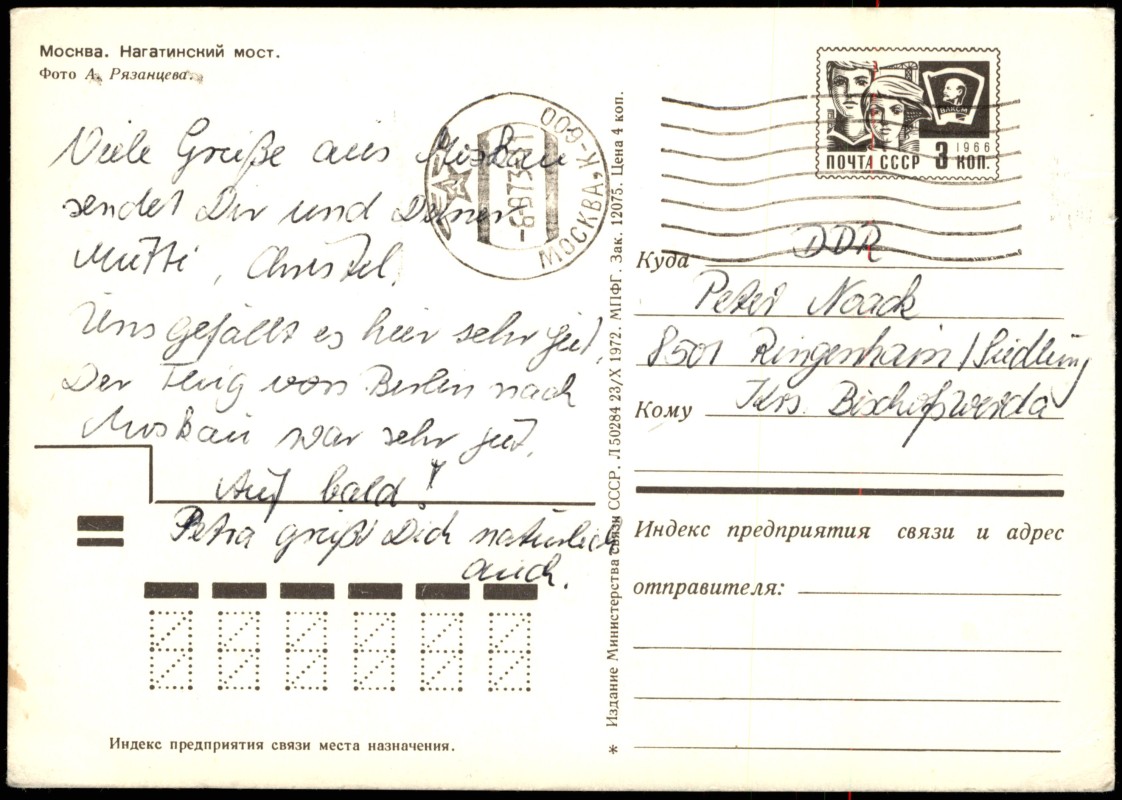 Москва. Нагатинский мост.
Фото А. Рязанцева.
Viele Grüße aus Moskau
sendet Dir und Deiner
Mutti, Christel.
Uns gefällt es hier sehr gut.
Der Flug von Berlin nach
Moskau war sehr gut.
Auf bald!
Petra grüßt Dich natürlich
auch.
Индекс предприятия связи места назначения.
МОСКВА, К-9
* Издание Министерства связи СССР. Л 50284 23/X 1972. МПФГ. Зак. 12075. Цена 4 коп.
ВЛКСМ
1966
ПОЧТА СССР 3 КОП.
Куда DDR
Peter Noack
8501 Ringenhain/Siedlung
Кому Krs. Bischofswerda
Индекс предприятия связи и адрес
отправителя: